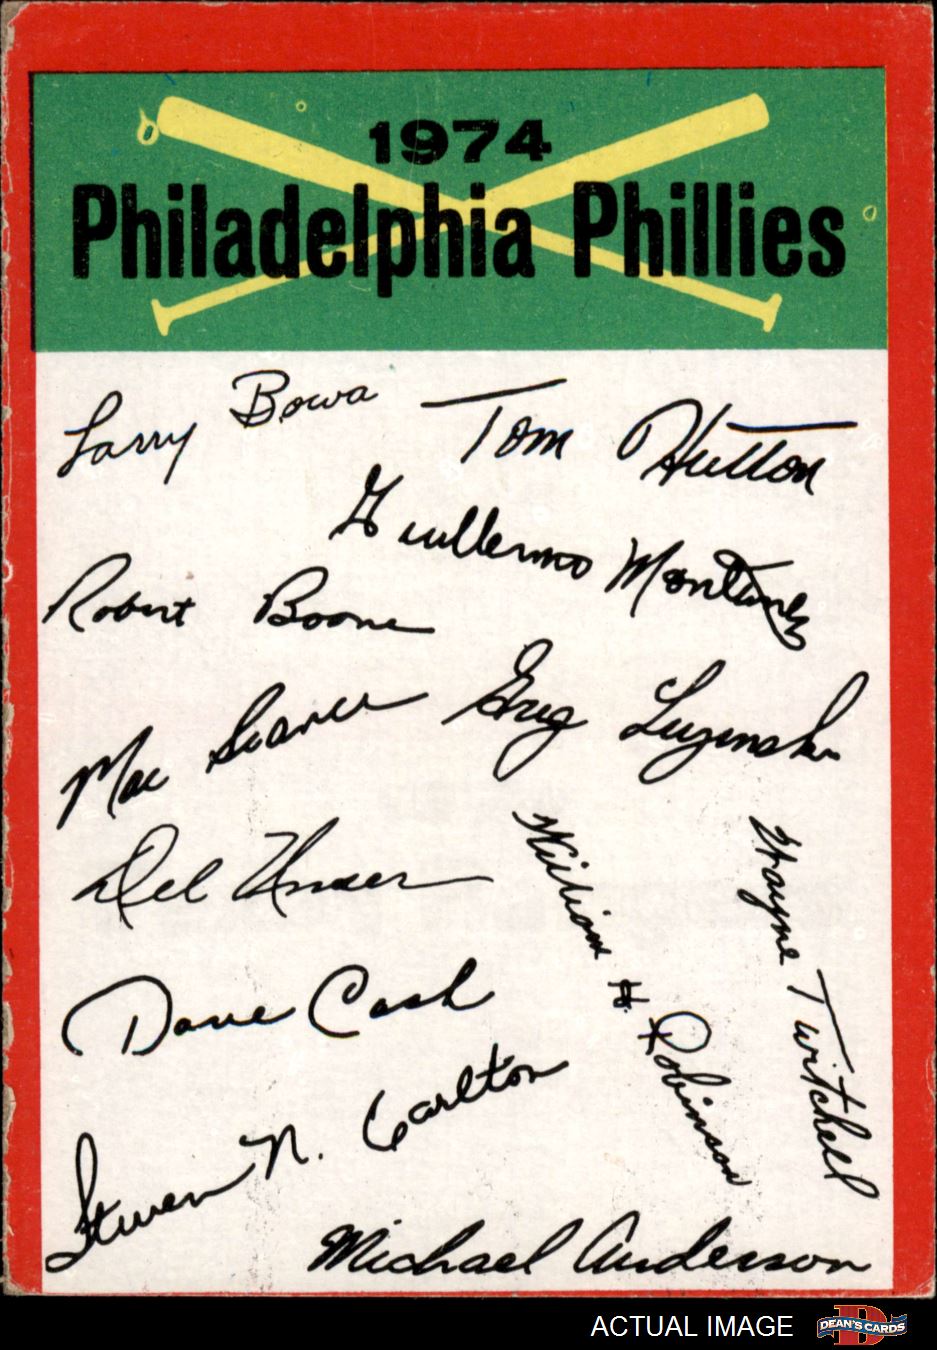 1974
Philadelphia Phillies
Larry Bowa
Tom Hutton
Guillermo Montanez
Robert Boone
Mac Scarce
Greg Luzinski
Del Unser
William H. Robinson
Wayne Twitchell
Dave Cash
Steven N. Carlton
Michael Anderson
ACTUAL IMAGE
DEAN'S CARDS